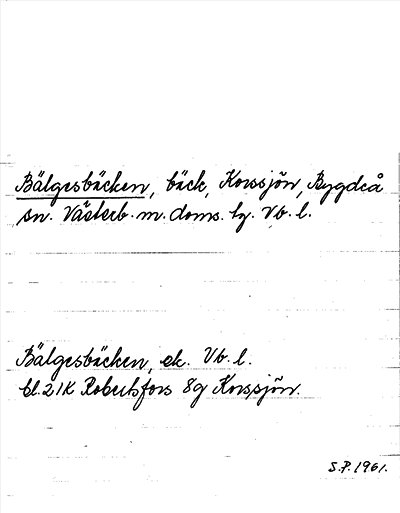 Bälgesbäcken, bäck, Korssjön, Bygdeå
sn. Västerb. m. doms. tg. Vb. l.
Bälgesbäcken, ek. Vb. l.
bl. 21K Robertsfors 8g Korssjön.
S.P. 1961.